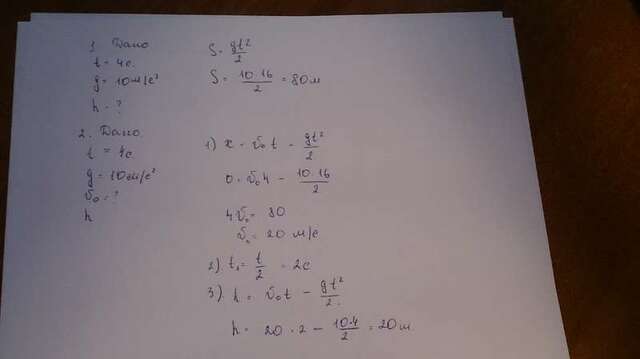 1. Дано
t = 4c.
g = 10м/с²
h - ?
S = gt²/2
S = 10·16/2 = 80м
2. Дано
t = 4c
g = 10м/с²
v₀ - ?
h
1) x = v₀t - gt²/2
0 = v₀4 - 10·16/2
4v₀ = 80
v₀ = 20 м/с
2) t₁ = t/2 = 2c
3) h = v₀t - gt²/2.
h = 20·2 - 10·4/2 = 20м